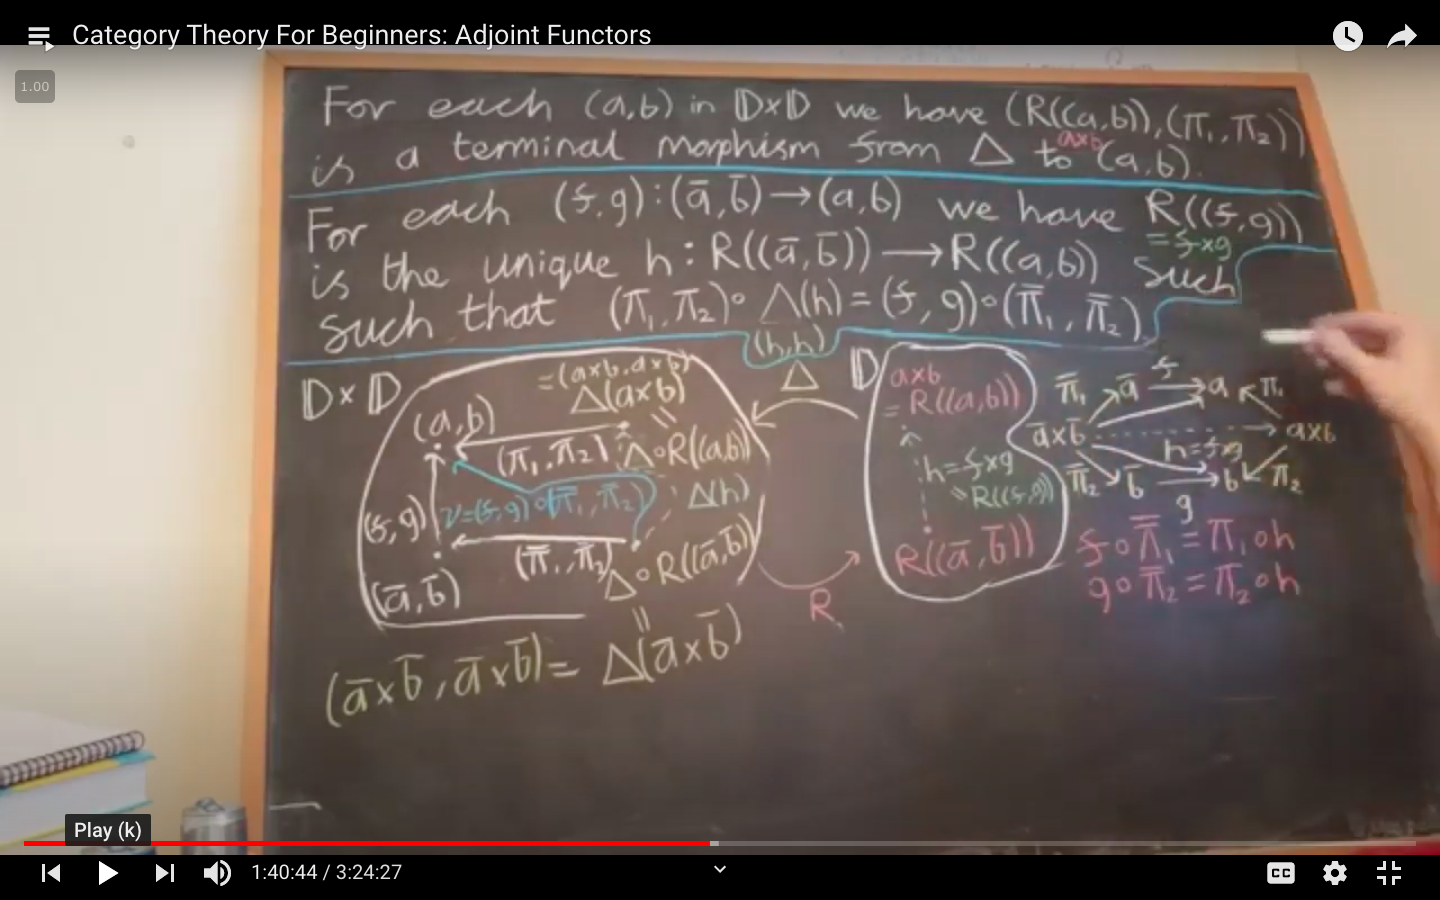 Category Theory For Beginners: Adjoint Functors
1.00
For each (a,b) in 𝔻×𝔻 we have (R((a,b)),(π₁,π₂))
a×b
is a terminal morphism from Δ to (a,b).
For each (f,g):(ā,b̄)→(a,b) we have R((f,g))
=f×g
is the unique h:R((ā,b̄))→R((a,b)) such
such that (π₁,π₂)∘Δ(h)=(f,g)∘(π̄₁,π̄₂)
(h,h)
𝔻×𝔻
=(a×b,a×b)
Δ(a×b)
(a,b)
=
(π₁,π₂)
Δ∘R((a,b))
(f,g)
ν=(f,g)∘(π̄₁,π̄₂)
Δ(h)
(π̄₁,π̄₂)
Δ∘R((ā,b̄))
(ā,b̄)
=
(ā×b̄,ā×b̄)=Δ(ā×b̄)
Δ
R
𝔻
a×b
=R((a,b))
h=f×g
=R((f,g))
R((ā,b̄))
π̄₁ ā f a π₁
ā×b̄ a×b
h=f×g
π̄₂ b̄ b π₂
g
f∘π̄₁=π₁∘h
g∘π̄₂=π₂∘h
Play (k)
1:40:44 / 3:24:27
CC